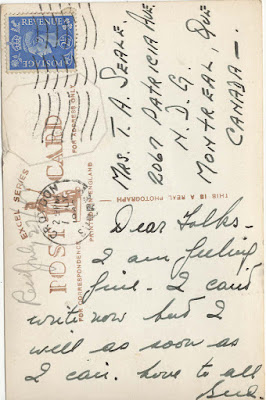 REVENUE
POSTAGE
MRS. T. A. SEALE.
2067 PATRICIA AVE.
N. D. G.
MONTREAL, QUE
CANADA —
EXCEL SERIES
POST CARD
FOR CORRESPONDENCE
FOR ADDRESS ONLY
THIS IS A REAL PHOTOGRAPH
CROYDON
Dear Folks -
I am feeling
fine. I can't
write now but I
will as soon as
I can. Love to all